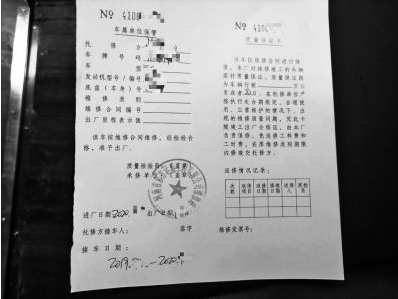 № 4100
车属单位保管
托修方
车牌号码
车型
发动机型号/编号
底盘(车身)号
维修类别
维修合同编号
出厂里程表示值
该车按维修合同维修,经检验合
格,准予出厂。
质量检验员(盖章)
承修单位(盖章)
进厂日期2020 出厂日期
托修方接车人: 签字
接车日期:
2019. — 2020.
№ 410
质量保证卡
该车按维修合同进行维
修,本厂对维修竣工的车辆
实行质量保证,质量保证期
为车辆行驶 万公
里或者 日。在托修单位严
格执行走合期规定、合理使
用、正常维护的情况下,出
现的维修质量问题,凭此卡
随竣工出厂合格证,由本厂
负责保修,免返修工料费和
工时费,在原维修类别期限
内修竣交托修方。
返修情况记录:
次数 返修项目 返修日期 修竣日期 送修人 质检员
维修发票号: